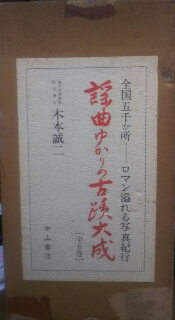 全国五千か所――ロマン溢れる写真紀行
謡曲ゆかりの古蹟大成
[全五巻]
木本誠二
中山書房